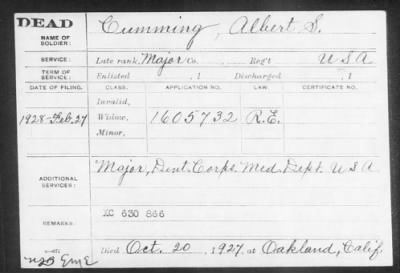 DEAD
NAME OF SOLDIER: Cumming, Albert S.
SERVICE: Late rank, Major Co. Reg't U S A
TERM OF SERVICE: Enlisted , 1 Discharged , 1
DATE OF FILING. CLASS. APPLICATION NO. LAW. CERTIFICATE NO.
Invalid,
1928-Feb.27 Widow, 1605732 R.E.
Minor,
ADDITIONAL SERVICES: Major, Dent. Corps. Med. Dept. U S A
REMARKS: XC 630 866
Died Oct. 20, 1927, at Oakland, Calif.